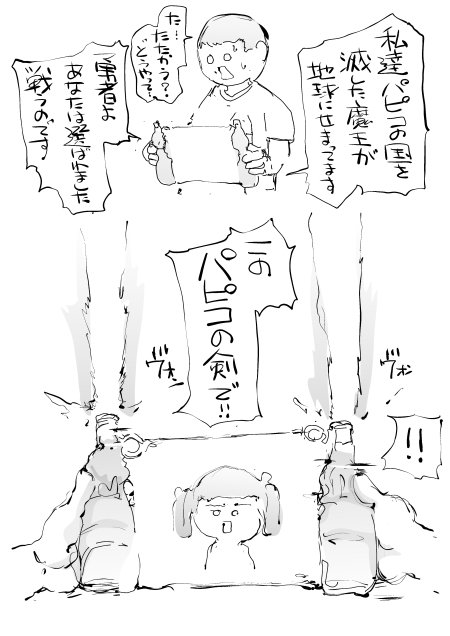 私達パピコの国を
滅した魔王が
地球にせまってます
た…
たたかう？？
どうやって？
勇者よ
あなたは選ばれました
戦うのです
この
パピコの剣で!!
ヴォン
ヴォン
!!